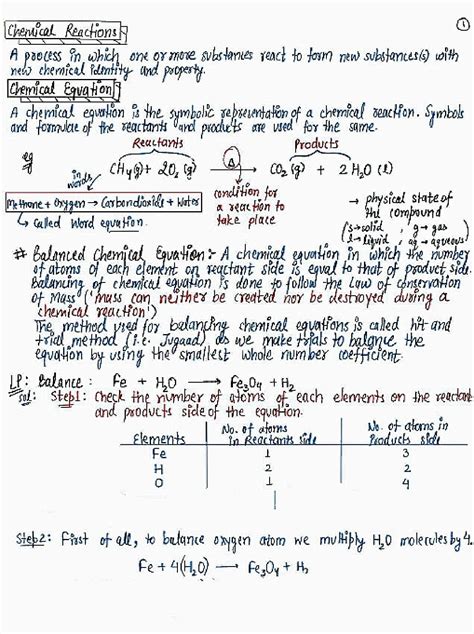 1
Chemical Reactions
A process in which one or more substances react to form new substances(s) with
new chemical identity and property.
Chemical Equation
A chemical equation is the symbolic representation of a chemical reaction. Symbols
and formulae of the reactants and products are used for the same.
Reactants Products
eg CH₄(g) + 2O₂(g) Δ → CO₂(g) + 2H₂O(l)
in words
Methane + Oxygen → Carbondioxide + Water
↳ Called Word equation.
condition for
a reaction to
take place
→ physical state of
the compound
(s→solid, g→gas
l→liquid, aq→aqueous)
# Balanced Chemical Equation:- A chemical equation in which the number
of atoms of each element on reactant side is equal to that of product side.
Balancing of chemical equation is done to follow the Law of conservation
of Mass ('mass can neither be created nor be destroyed during a
chemical reaction')
The method used for balancing chemical equations is called hit and
trial method (i.e. Jugaad) as we make trials to balance the
equation by using the smallest whole number coefficient.
LP: Balance: Fe + H₂O → Fe₃O₄ + H₂
Sol: Step1: Check the number of atoms of each elements on the reactant
and products side of the equation.
Elements No. of atoms in Reactants side No. of atoms in Products side
Fe 1 3
H 2 2
O 1 4
Step2: First of all, to balance oxygen atom we multiply H₂O molecules by 4.
Fe + 4(H₂O) → Fe₃O₄ + H₂